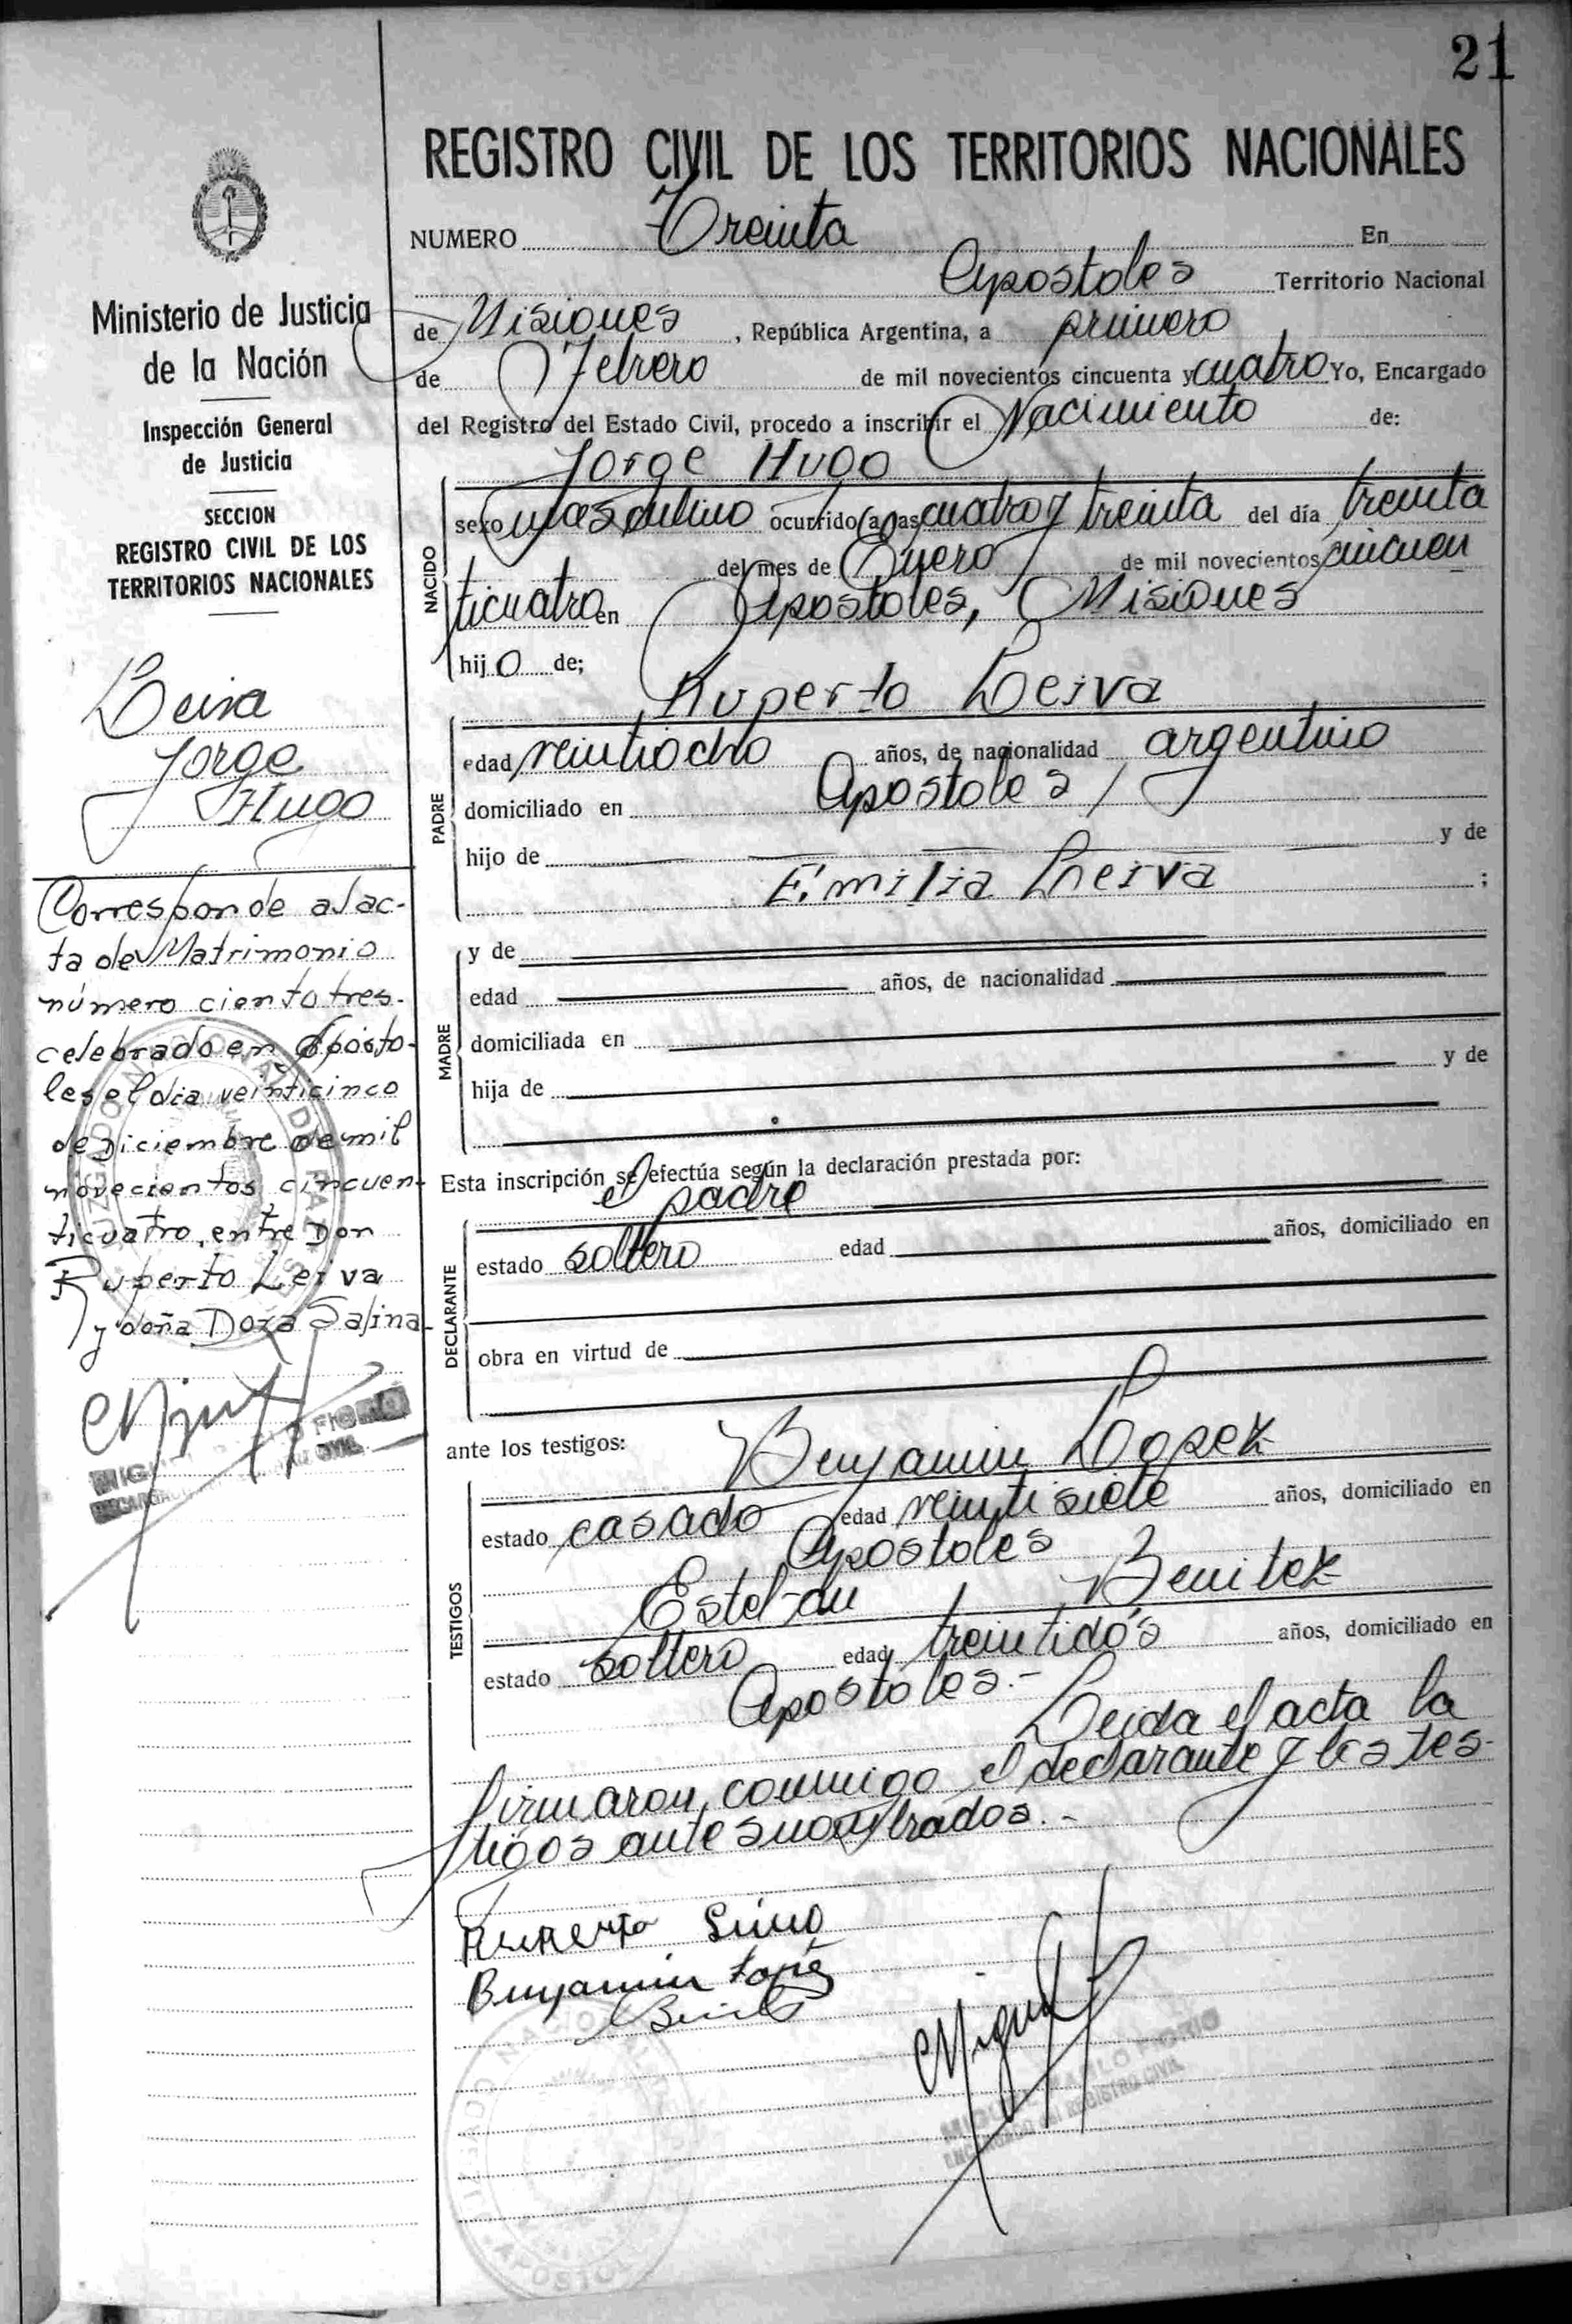 21
REGISTRO CIVIL DE LOS TERRITORIOS NACIONALES
NUMERO Treinta En
Apostoles Territorio Nacional
de Misiones, República Argentina, a primero
de Febrero de mil novecientos cincuenta y cuatro Yo, Encargado
del Registro del Estado Civil, procedo a inscribir el Nacimiento de:
Jorge Hugo
NACIDO
sexo masculino ocurrido a las cuatro y treinta del día treinta
del mes de Enero de mil novecientos cincuen
ticuatro en Apostoles, Misiones
hijo de;
Ruperto Leiva
PADRE
edad veintiocho años, de nacionalidad argentino
domiciliado en Apostoles,
hijo de y de
Emilia Leiva ;
MADRE
y de
edad años, de nacionalidad
domiciliada en
hija de y de
Esta inscripción se efectúa según la declaración prestada por:
el padre
DECLARANTE
estado soltero edad años, domiciliado en
obra en virtud de
ante los testigos: Benjamin Lopez
TESTIGOS
estado casado edad veintisiete años, domiciliado en
Apostoles
Benitez
estado soltero edad treintidós años, domiciliado en
Apostoles.-
Leida el acta la
firmaron conmigo el declarante y los tes-
tigos antes nombrados.-
Benjamin
Miguel
ENCARGADO DEL REGISTRO CIVIL
Ministerio de Justicia
de la Nación
Inspección General
de Justicia
SECCION
REGISTRO CIVIL DE LOS
TERRITORIOS NACIONALES
Leiva
Jorge
Hugo
Corresponde al ac-
ta de Matrimonio
número ciento tres.
celebrado en Aposto-
les el dia veinticinco
de Diciembre de mil
novecientos cincuen-
ticuatro, entre Don
Ruperto Leiva
y doña Dora Salina